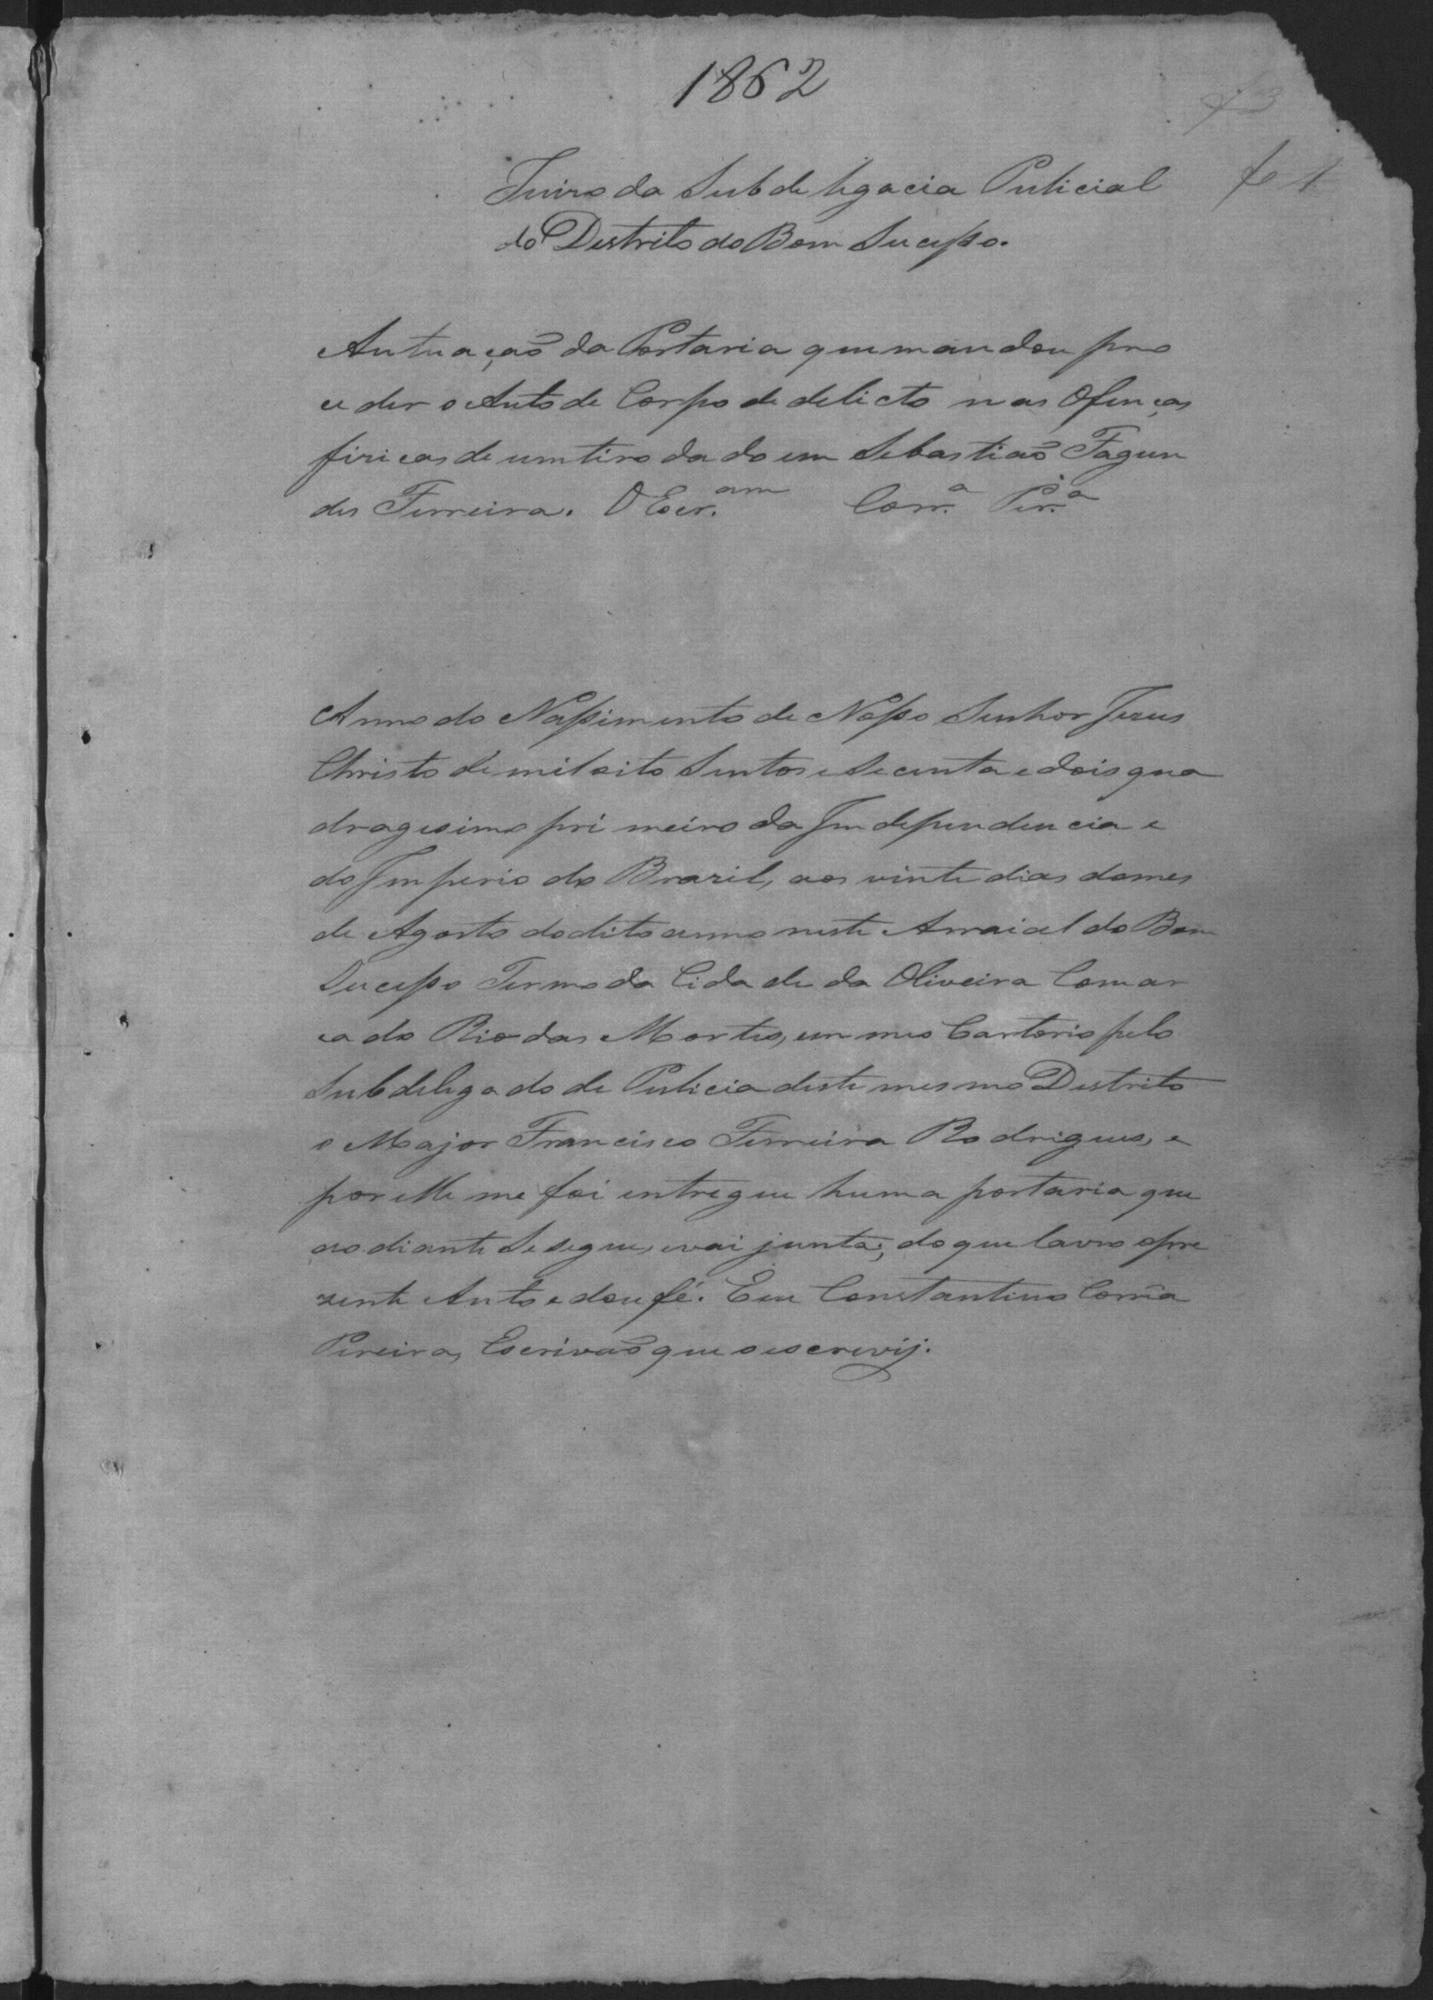 1862
f 3
fo 1
Juizo da Subdelegacia Pulicial
do Destrito do Bom Sucesso.
Autuação da Portaria que mandou pro
ceder o Auto de Corpo de delicto nas Ofenças
fizicas de um tiro dado em Sebastião Fagun
des Ferreira. O Escr.am Corr.a Per.a
Anno do Nassimento de Nosso Senhor Jezus
Christo de mil oito Sentos e Secenta e dois qua
dragesimo primeiro da Independencia e
do Imperio do Brazil, aos vinte dias do mes
de Agosto do dito anno neste Arraial do Bom
Sucesso Termo da Cidade da Oliveira Comar
ca do Rio das Mortes, em meo Cartorio pelo
Subdelegado de Pulicia deste mesmo Destrito
o Major Francisco Ferreira Rodrigues, e
por elle me foi entregue huma portaria que
ao diante Se segue, e vai junta; do que lavro o pre
zente Auto e dou fé. Eu Constantino Corrêa
Pereira, Escrivaõ que o escrevij.